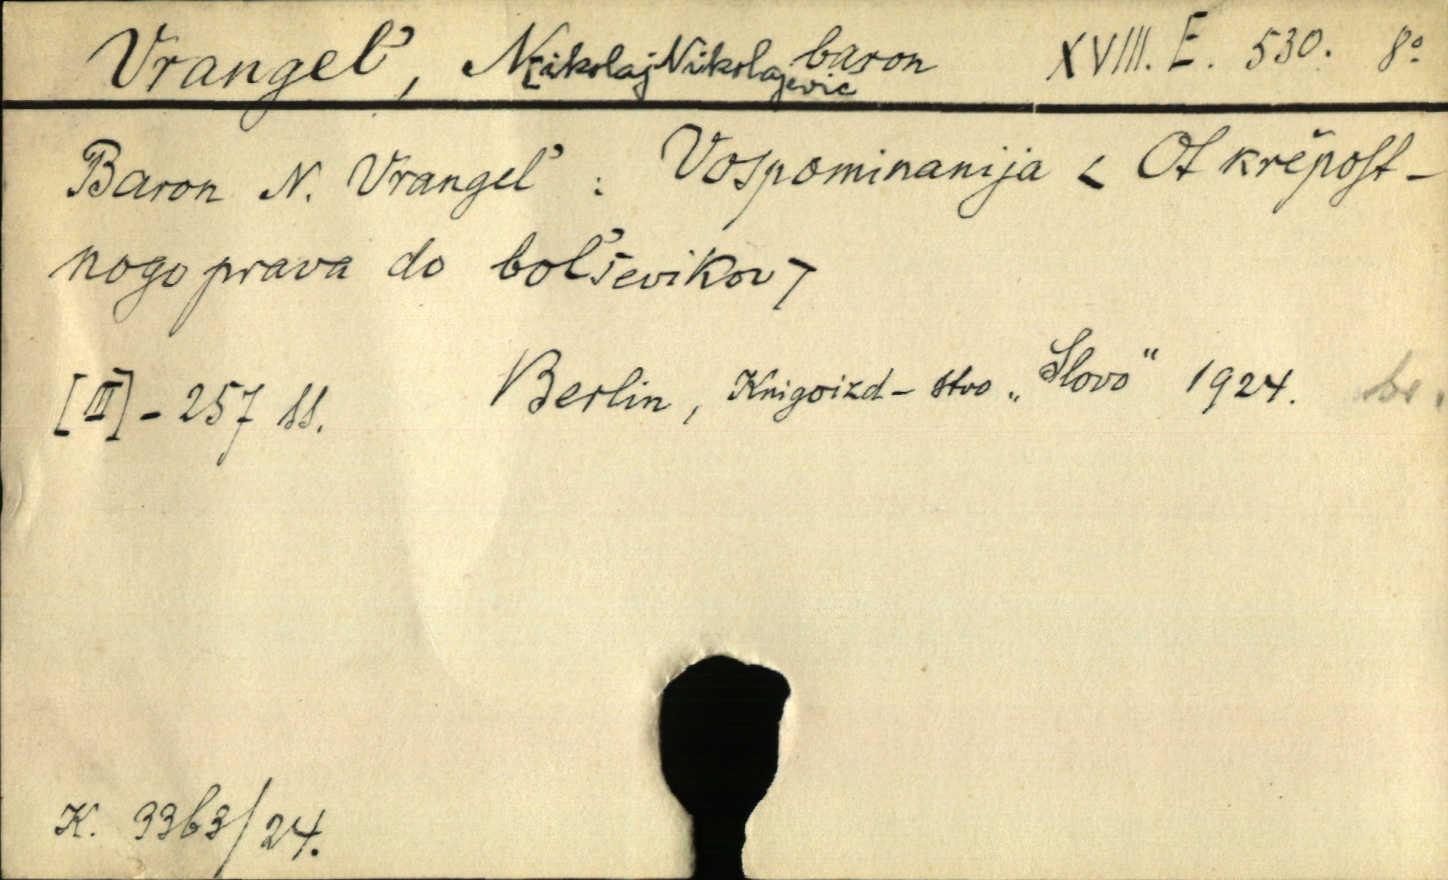 Vrangel', N[ikolaj Nikolajevič baron XVIII. E. 530. 8°
Baron N. Vrangel' : Vospominanija < Ot krěpost-
nogo prava do bol'ševikov >
[III] - 257 ss. Berlin, Knigoizd-stvo „Slovo" 1924. br.
K. 3363/24.